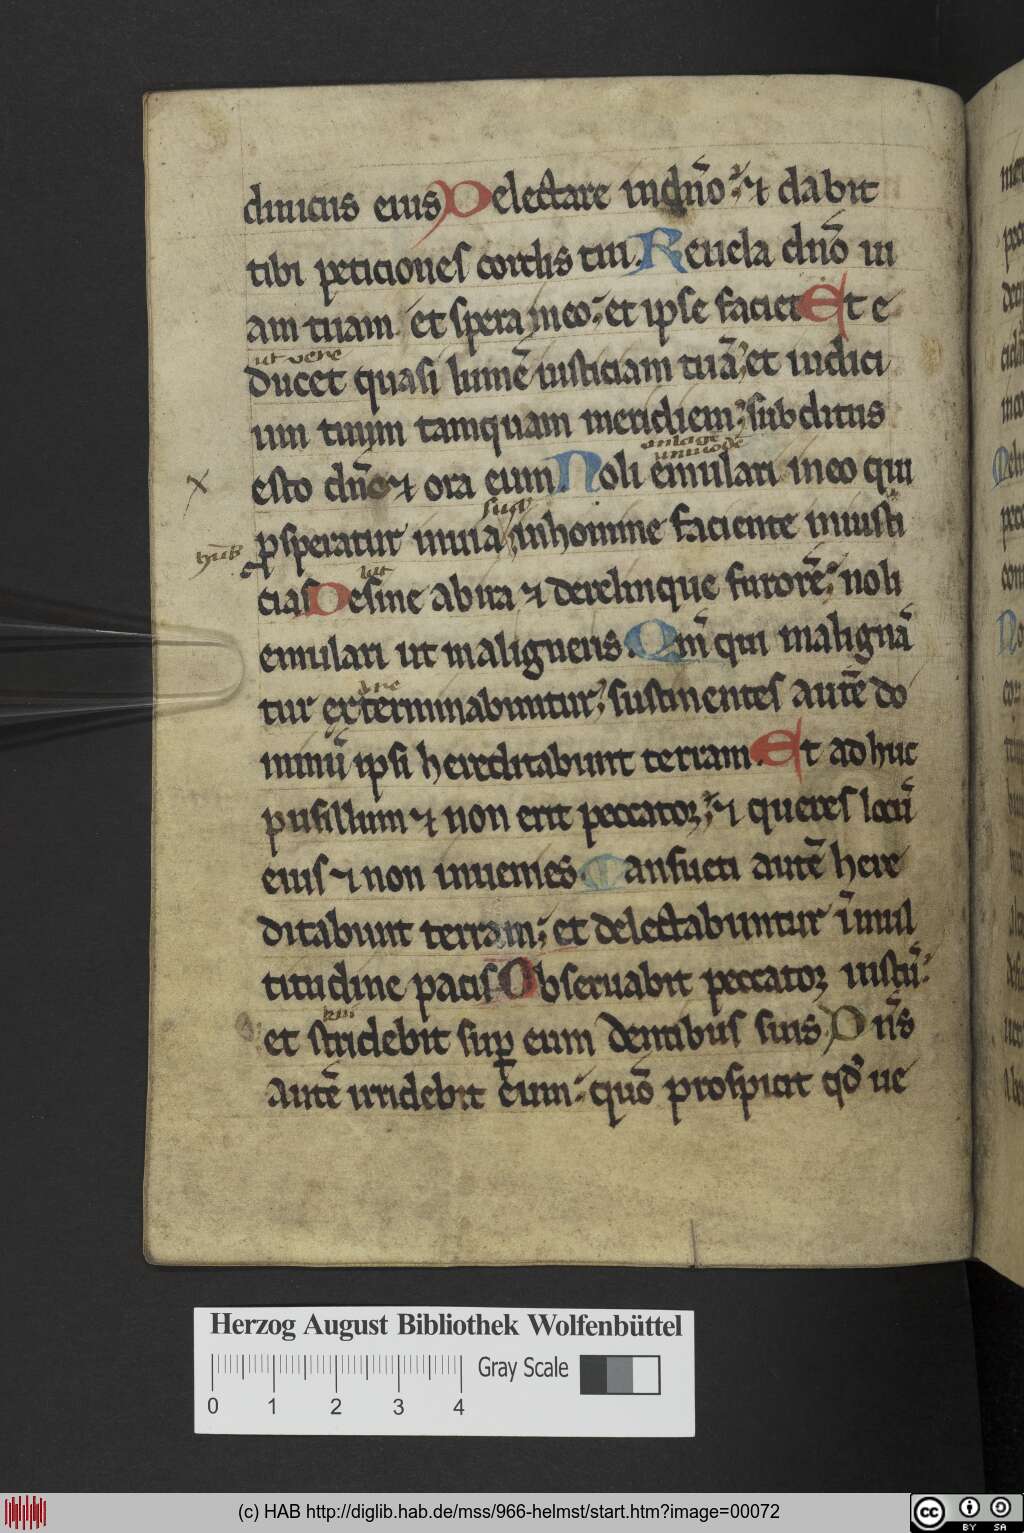 diuiciis eius Delectare in dn̄o ⁊ dabit
tibi peticiones cordis tui. Reuela dn̄o ui
am tuam et spera in eo et ipse faciet Et e
ducet quasi lumē iusticiam tuā et iudici
um tuum tamquam meridiem subditus
esto dn̄o ⁊ ora eum Noli emulari in eo qui
ꝓsperatur in uia sua in homine faciente iniusti
cias Desine ab ira ⁊ derelinque furorē noli
emulari ut maligneris. Qm̄ qui malignā
tur exterminabuntur sustinentes autē do
minū ipsi hereditabunt terram. Et adhuc
pusillum ⁊ non erit peccator ⁊ queres locū
eius ⁊ non inuenies Mansueti autē here
ditabunt terram et delectabuntur ī mul
titudine pacis Obseruabit peccator iustū
et stridebit suꝑ eum dentibus suis Dn̄s
autē irridebit eum quō prospicit qd̓ ue
Herzog August Bibliothek Wolfenbüttel
Gray Scale
0 1 2 3 4
(c) HAB http://diglib.hab.de/mss/966-helmst/start.htm?image=00072
cc BY SA